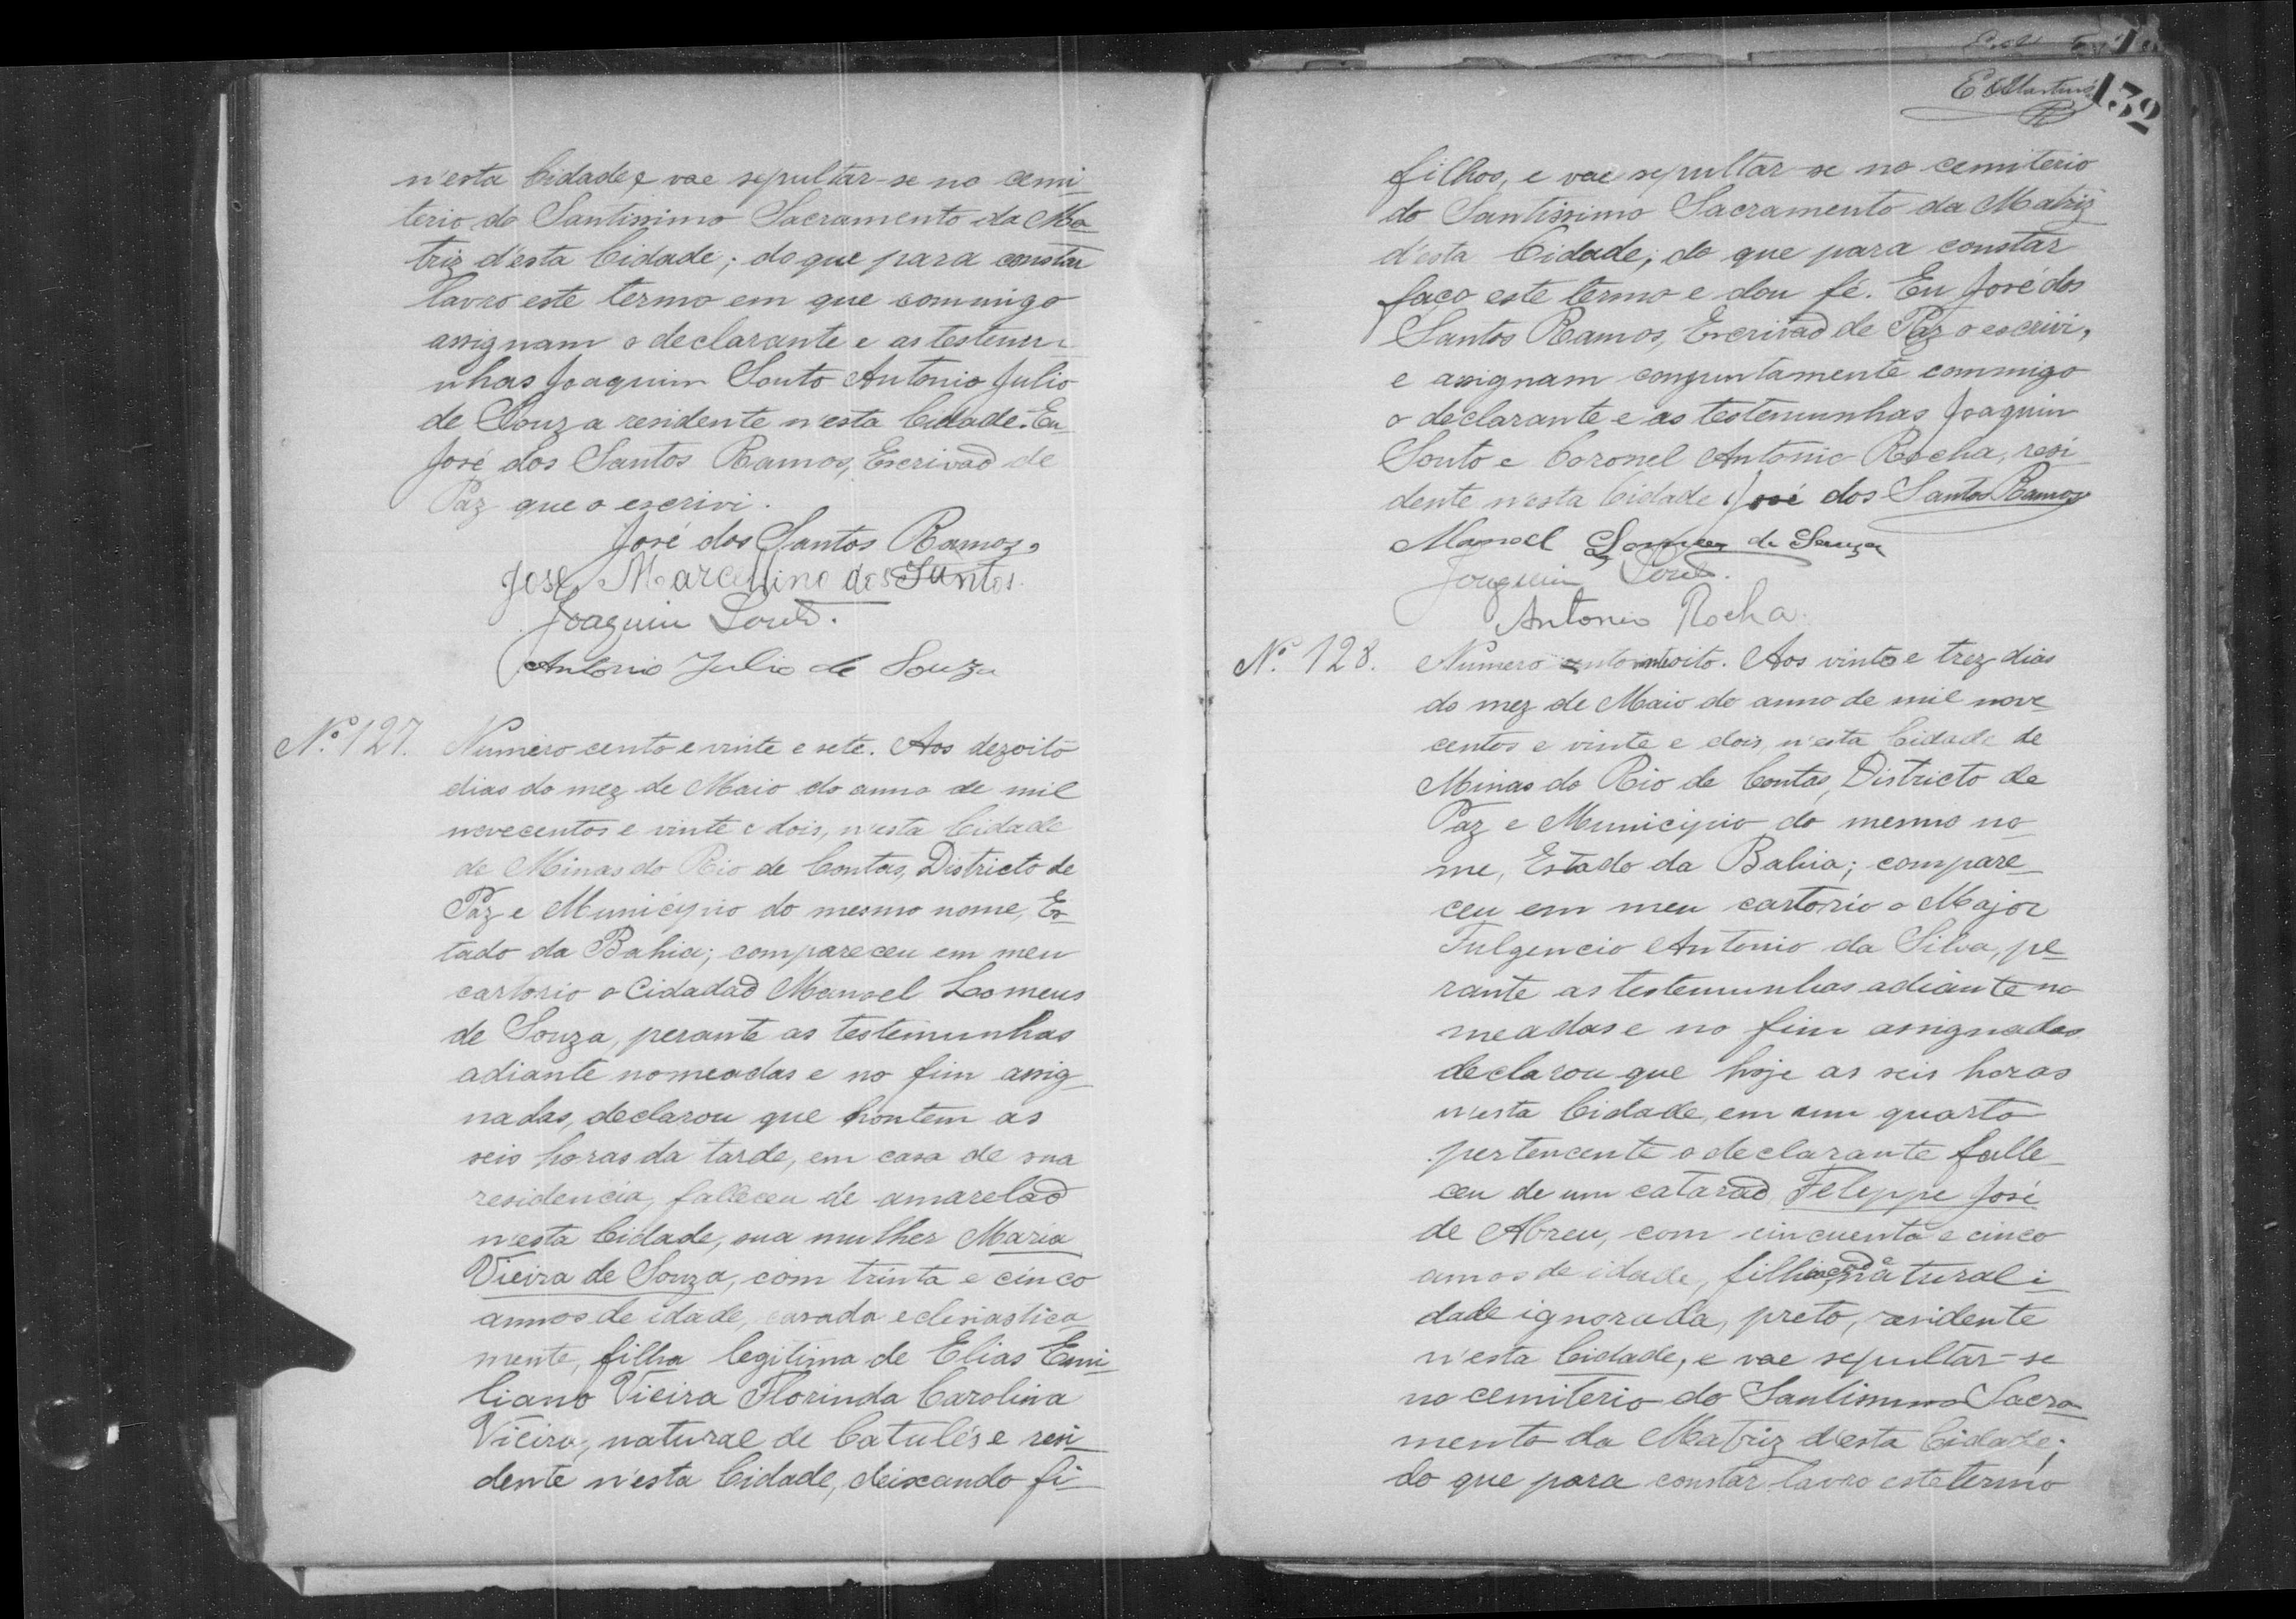 n'esta Cidade e vae sepultar-se no cemi
terio do Santissimo Sacramento da Ma
triz d'esta Cidade; do que para constar
lavro este termo em que commigo
assignam o declarante e as testemu
nhas Joaquim Souto Antonio Julio
de Souza residente n'esta Cidade. Eu
José dos Santos Ramos, Escrivaõ de
Paz que o escrivi.
José dos Santos Ramos.
José Marcellino dos Santos.
Joaquim Souto.
Antonio Julio de Souza
Nº 127. Numero cento e vinte e sete. Aos dezoito
dias do mez de Maio do anno de mil
novecentos e vinte e dois, n'esta Cidade
de Minas do Rio de Contas, Districto de
Paz e Municipio do mesmo nome, Es
tado da Bahia; compareceu em meu
cartorio o Cidadaõ Manoel Lomeus
de Souza, perante as testemunhas
adiante nomeadas e no fim assig
nadas, declarou que hontem as
seis horas da tarde, em casa de sua
residencia, falleceu de amarelaõ
n'esta Cidade, sua mulher Maria
Vieira de Souza, com trinta e cinco
annos de idade, casada eclesiastica
mente, filha legitima de Elias Emi
liano Vieira Florinda Carolina
Vieira, natural de Catulés e resi
dente n'esta Cidade, deixando fi
E Martins
132
filhos, e vae sepultar-se no cemiterio
do Santissimo Sacramento da Matriz
d'esta Cidade; do que para constar
faço este termo e dou fé. Eu José dos
Santos Ramos, Escrivaõ de Paz o escrivi,
e assignam conjuntamente commigo
o declarante e as testemunhas Joaquim
Souto e Coronel Antonio Rocha, resi
dente n'esta Cidade. José dos Santos Ramos
Manoel de Souza
Joaquim Souto.
Antonio Rocha.
Nº 128. Numero vinteoito. Aos vinte e trez dias
do mez de Maio do anno de mil nove
centos e vinte e dois, n'esta Cidade de
Minas do Rio de Contas, Districto de
Paz e Municipio do mesmo no
me, Estado da Bahia; compare
ceu em meu cartorio o Major
Fulgencio Antonio da Silva, pe
rante as testemunhas adiante no
meadas e no fim assignadas
declarou que hoje as seis horas
n'esta Cidade, em um quarto
pertencente o declarante falle
ceu de um cataraõ Feleppe José
de Abreu, com cincuenta e cinco
annos de idade, naturali
dade ignorada, preto, residente
n'esta Cidade, e vae sepultar-se
no cemiterio do Santissimo Sacra
mento da Matriz d'esta Cidade;
do que para constar lavro este termo